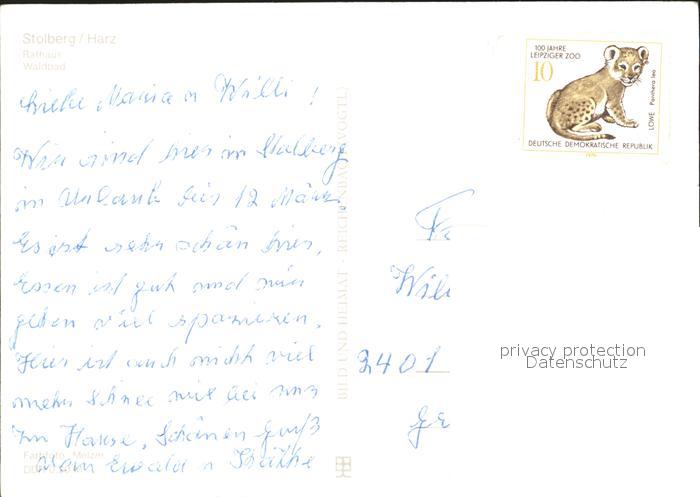 Stolberg / Harz
Rathaus
Waldbad
Liebe Maria u Willi !
Wir sind hier in Stolberg
in Urlaub bis 12 März.
Es ist sehr schön hier,
Essen ist gut und wir
gehen viel spazieren.
Hier ist auch nicht viel
mehr Schnee wie bei uns
zu Hause. Schönen Gruß
Ewald u
Farbfoto: Melzer
BILD UND HEIMAT · REICHENBACH (VOGTL)
100 JAHRE
LEIPZIGER ZOO
10
LÖWE Panthera leo
DEUTSCHE DEMOKRATISCHE REPUBLIK
Fa
Willi
2401
privacy protection
Datenschutz